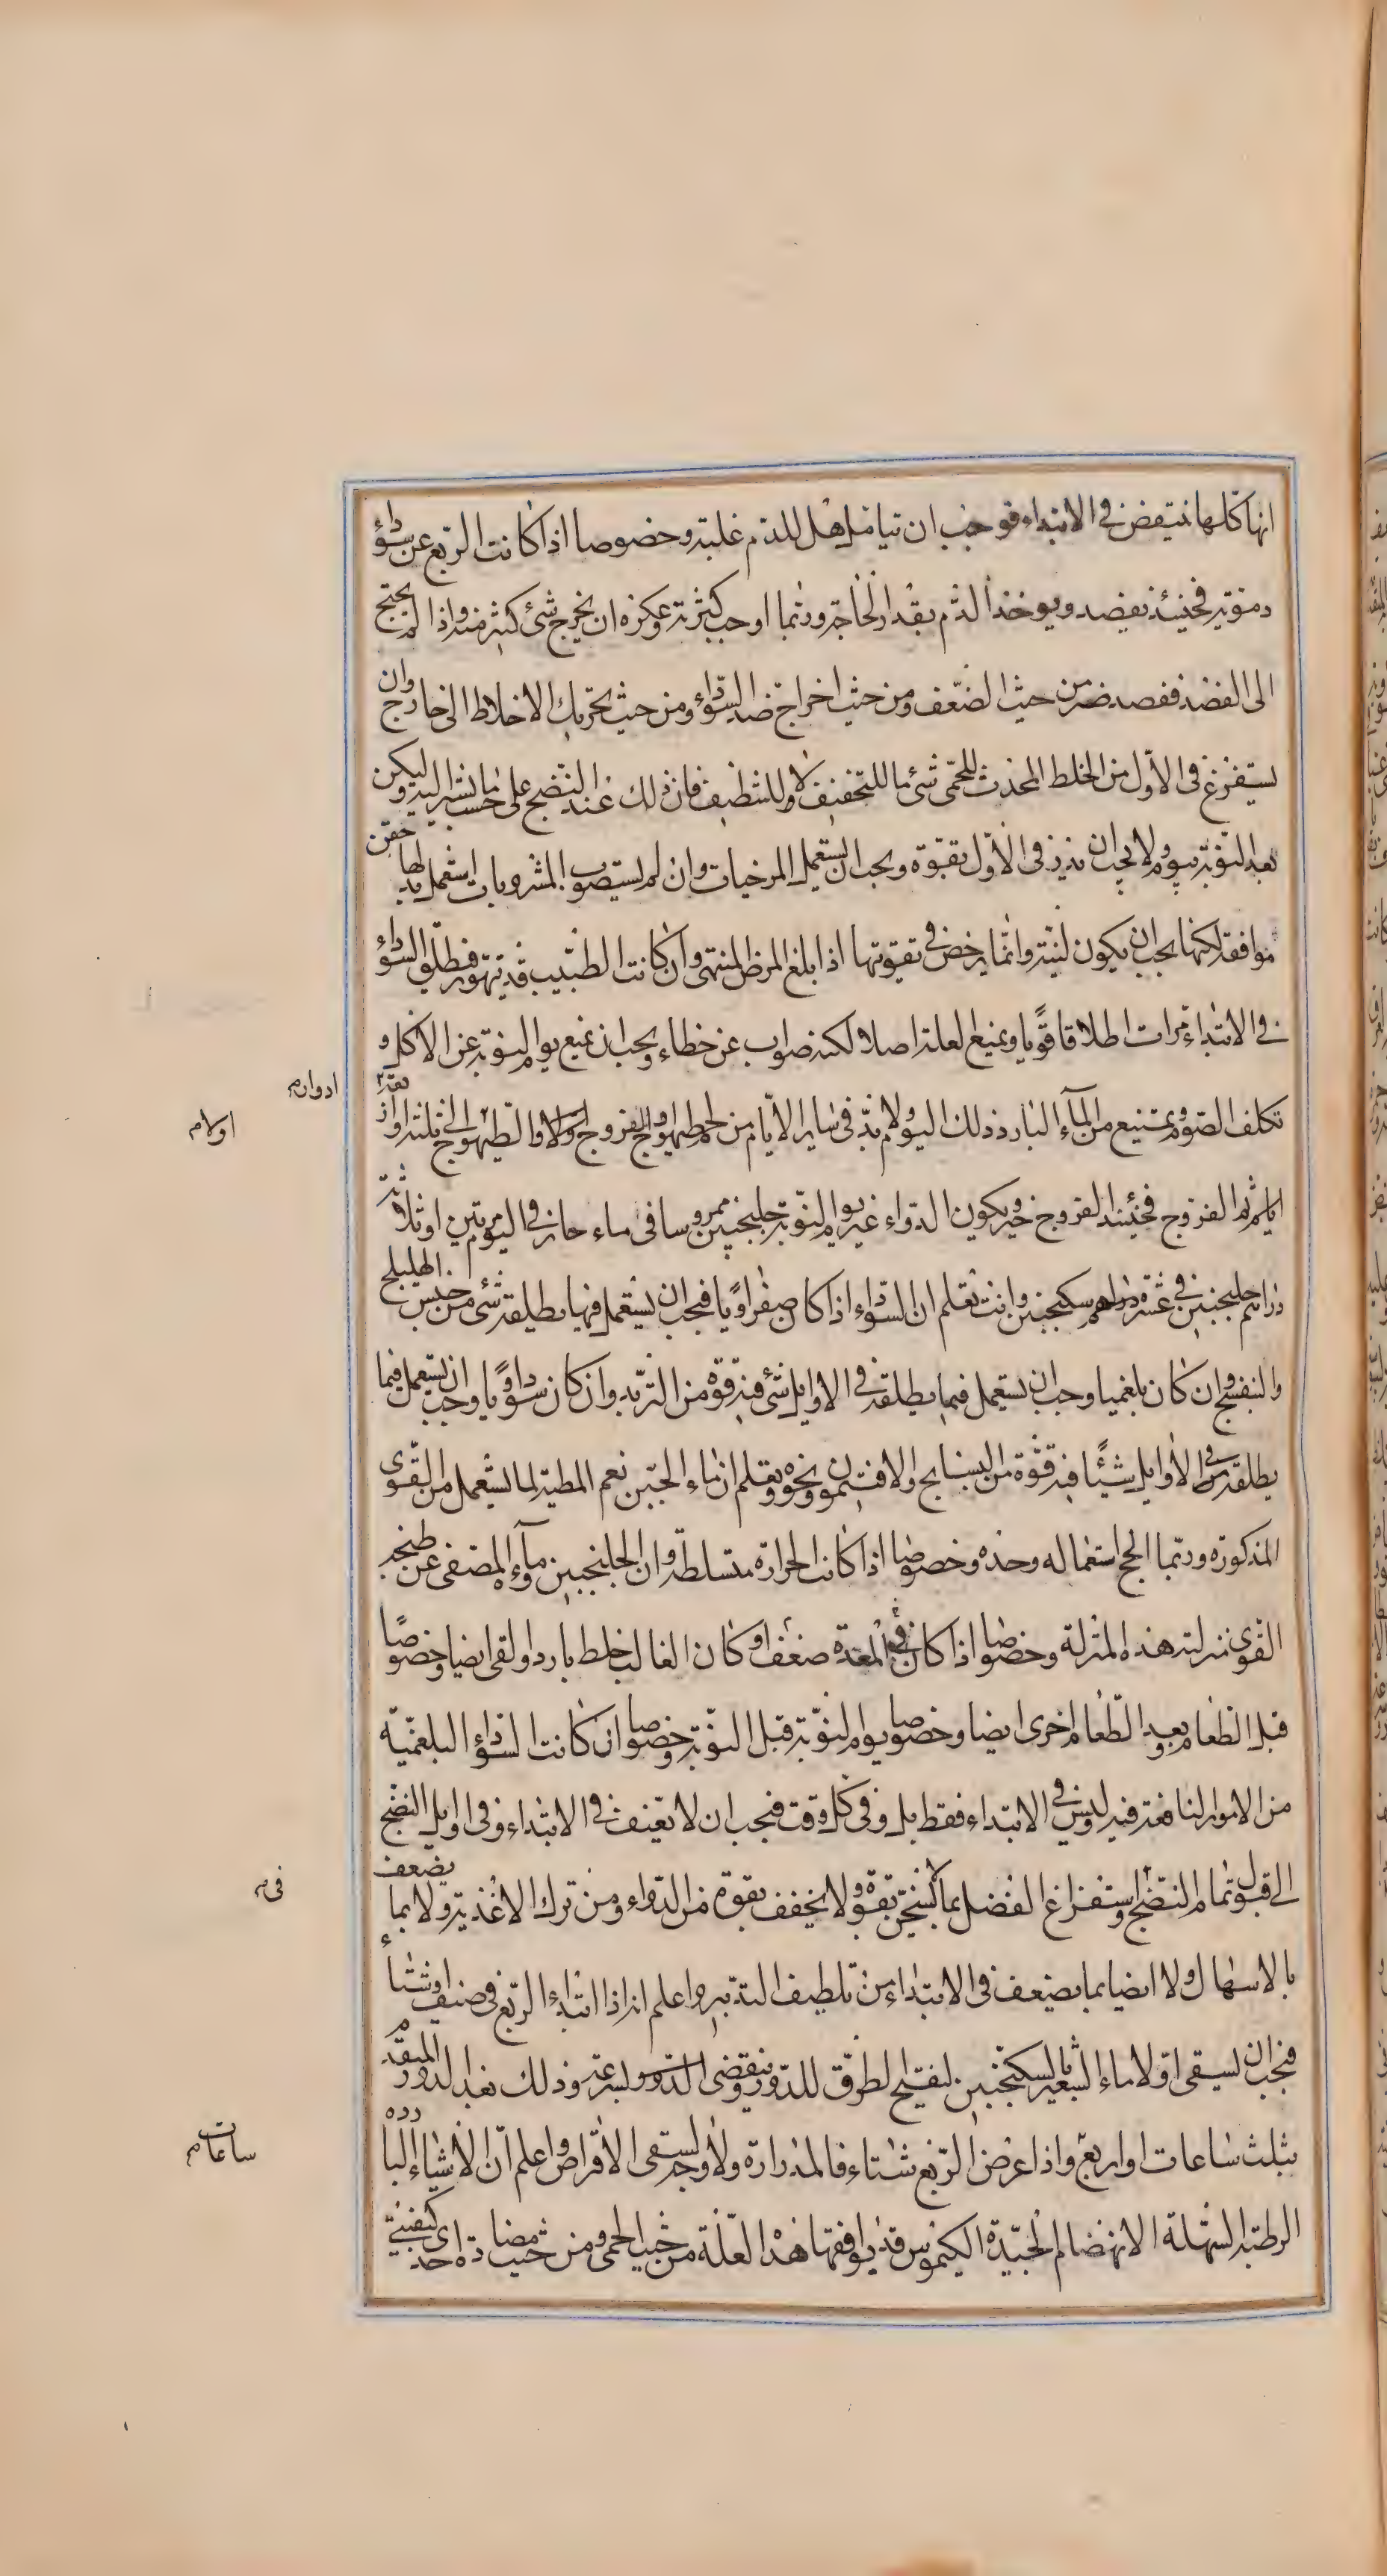 انها كلها تنتفض في الابتداء فوجب ان تتامل هل للدم غلبة وخصوصا اذا كانت الربع عن سوداء
دموية فحينئذ يفصد ويوخذ الدم بقدر الحاجة وربما اوجب كثرته وعكره ان يخرج شئ كثير منه واذا لم يحتج
الى الفصد ففصد ضر من حيث الضعف ومن حيث اخراج ضد السوداء ومن حيث تحريك الاخلاط الى خارج وان
يستفرغ في الاول من الخلط المحدث للحمى شئ ما للتخفيف لا وللتنظيف فان ذلك عند النضج على حسب ما نشير اليه وليكن
بعد النوبة بيوم ولا يجب ان يدر في الاول بقوة ويجب ان يستعمل المرخيات وان لم يستصوب المشروبات استعمل بدلها حقن
موافقة لكنها يجب ان يكون لينة وانما يرخص في تقويتها اذا بلغ المرض المنتهى وان كانت الطبيب قد يتهور فيطلق السوداء
في الابتداء مرات اطلاقا قويا ويمنع العلة اصلا لكنه صواب عن خطاء ويجب ان يمنع يوم النوبة عن الاكل و
تكلف الصوم ويمتنع من الماء البارد ذلك اليوم ولا بد في ساير الايام من لحم طيهوج الفروج اولا والطيهوج الى ثلثة ادوار
ايام ثم الفروج فحينئذ الفروج خير ويكون الدواء غير يوم النوبة جلنجبين ممروسا في ماء حار في اليوم مرتين او ثلاثة
دراهم جلنجبين في عشرة دراهم سكنجبين وانت تعلم ان السوداء اذا كان صفراويا فيجب ان يستعمل فيها يطلقه شئ من جنس الهليلج
والبنفسج وان كان بلغميا وجب ان يستعمل فيما يطلقه في الاوايل شئ فيه قوة من التربد وان كان سوداويا وجب ان يستعمل فيما
يطلقه في الاوايل شيئا فيه قوة من البسبايج والافتيمون ونحوه وتعلم ان ماء الجبن نعم المطية لما يستعمل من القوى
المذكورة وربما الحج استعماله وحده وخصوصا اذا كانت الحرارة متسلطة وان الجلنجبين وماؤه المصفى عن طبخه
القوى منزلته هذه المنزلة وخصوصا اذا كان في المعدة ضعف او كان الغالب خلط بارد والقى ايضا وخصوصا
قبل الطعام وبعد الطعام اخرى ايضا وخصوصا يوم النوبة قبل النوبة وخصوصا ان كانت السوداء البلغمية
من الامور النافعة فيه وليس في الابتداء فقط بل وفي كل وقت فيجب ان لا تعنف في الابتداء وفي اوايل النضج
الى قبول تمام النضج واستفراغ الفضل بما لا يسخن بقوة ولا يخفف بقوة من الدواء ومن ترك الاغذية ولا بما يضعف
بالاسهال ولا ايضا بما يضعف في الابتداء من تلطيف التدبير واعلم انه اذا ابتداء الربع في صيف او شتاء
فيجب ان يسقى اولا ماء الشعير بالسكنجبين لتفتيح الطرق للدور وينقضى الدور بسرعة وذلك بعد الدور المتقدم
بثلث ساعات او اربع واذا عرض الربع شتاء فالمدرارة اولا ولا وجه لسقى الاقراص واعلم ان الاشياء الباردة
الرطبة السهلة الانهضام الجيدة الكيموس قد يوافقها هذا العلة من حيث الحمى ومن حيث مضادة احدى كيفيتى
ادوار م
اولا م
في م
ساعات م